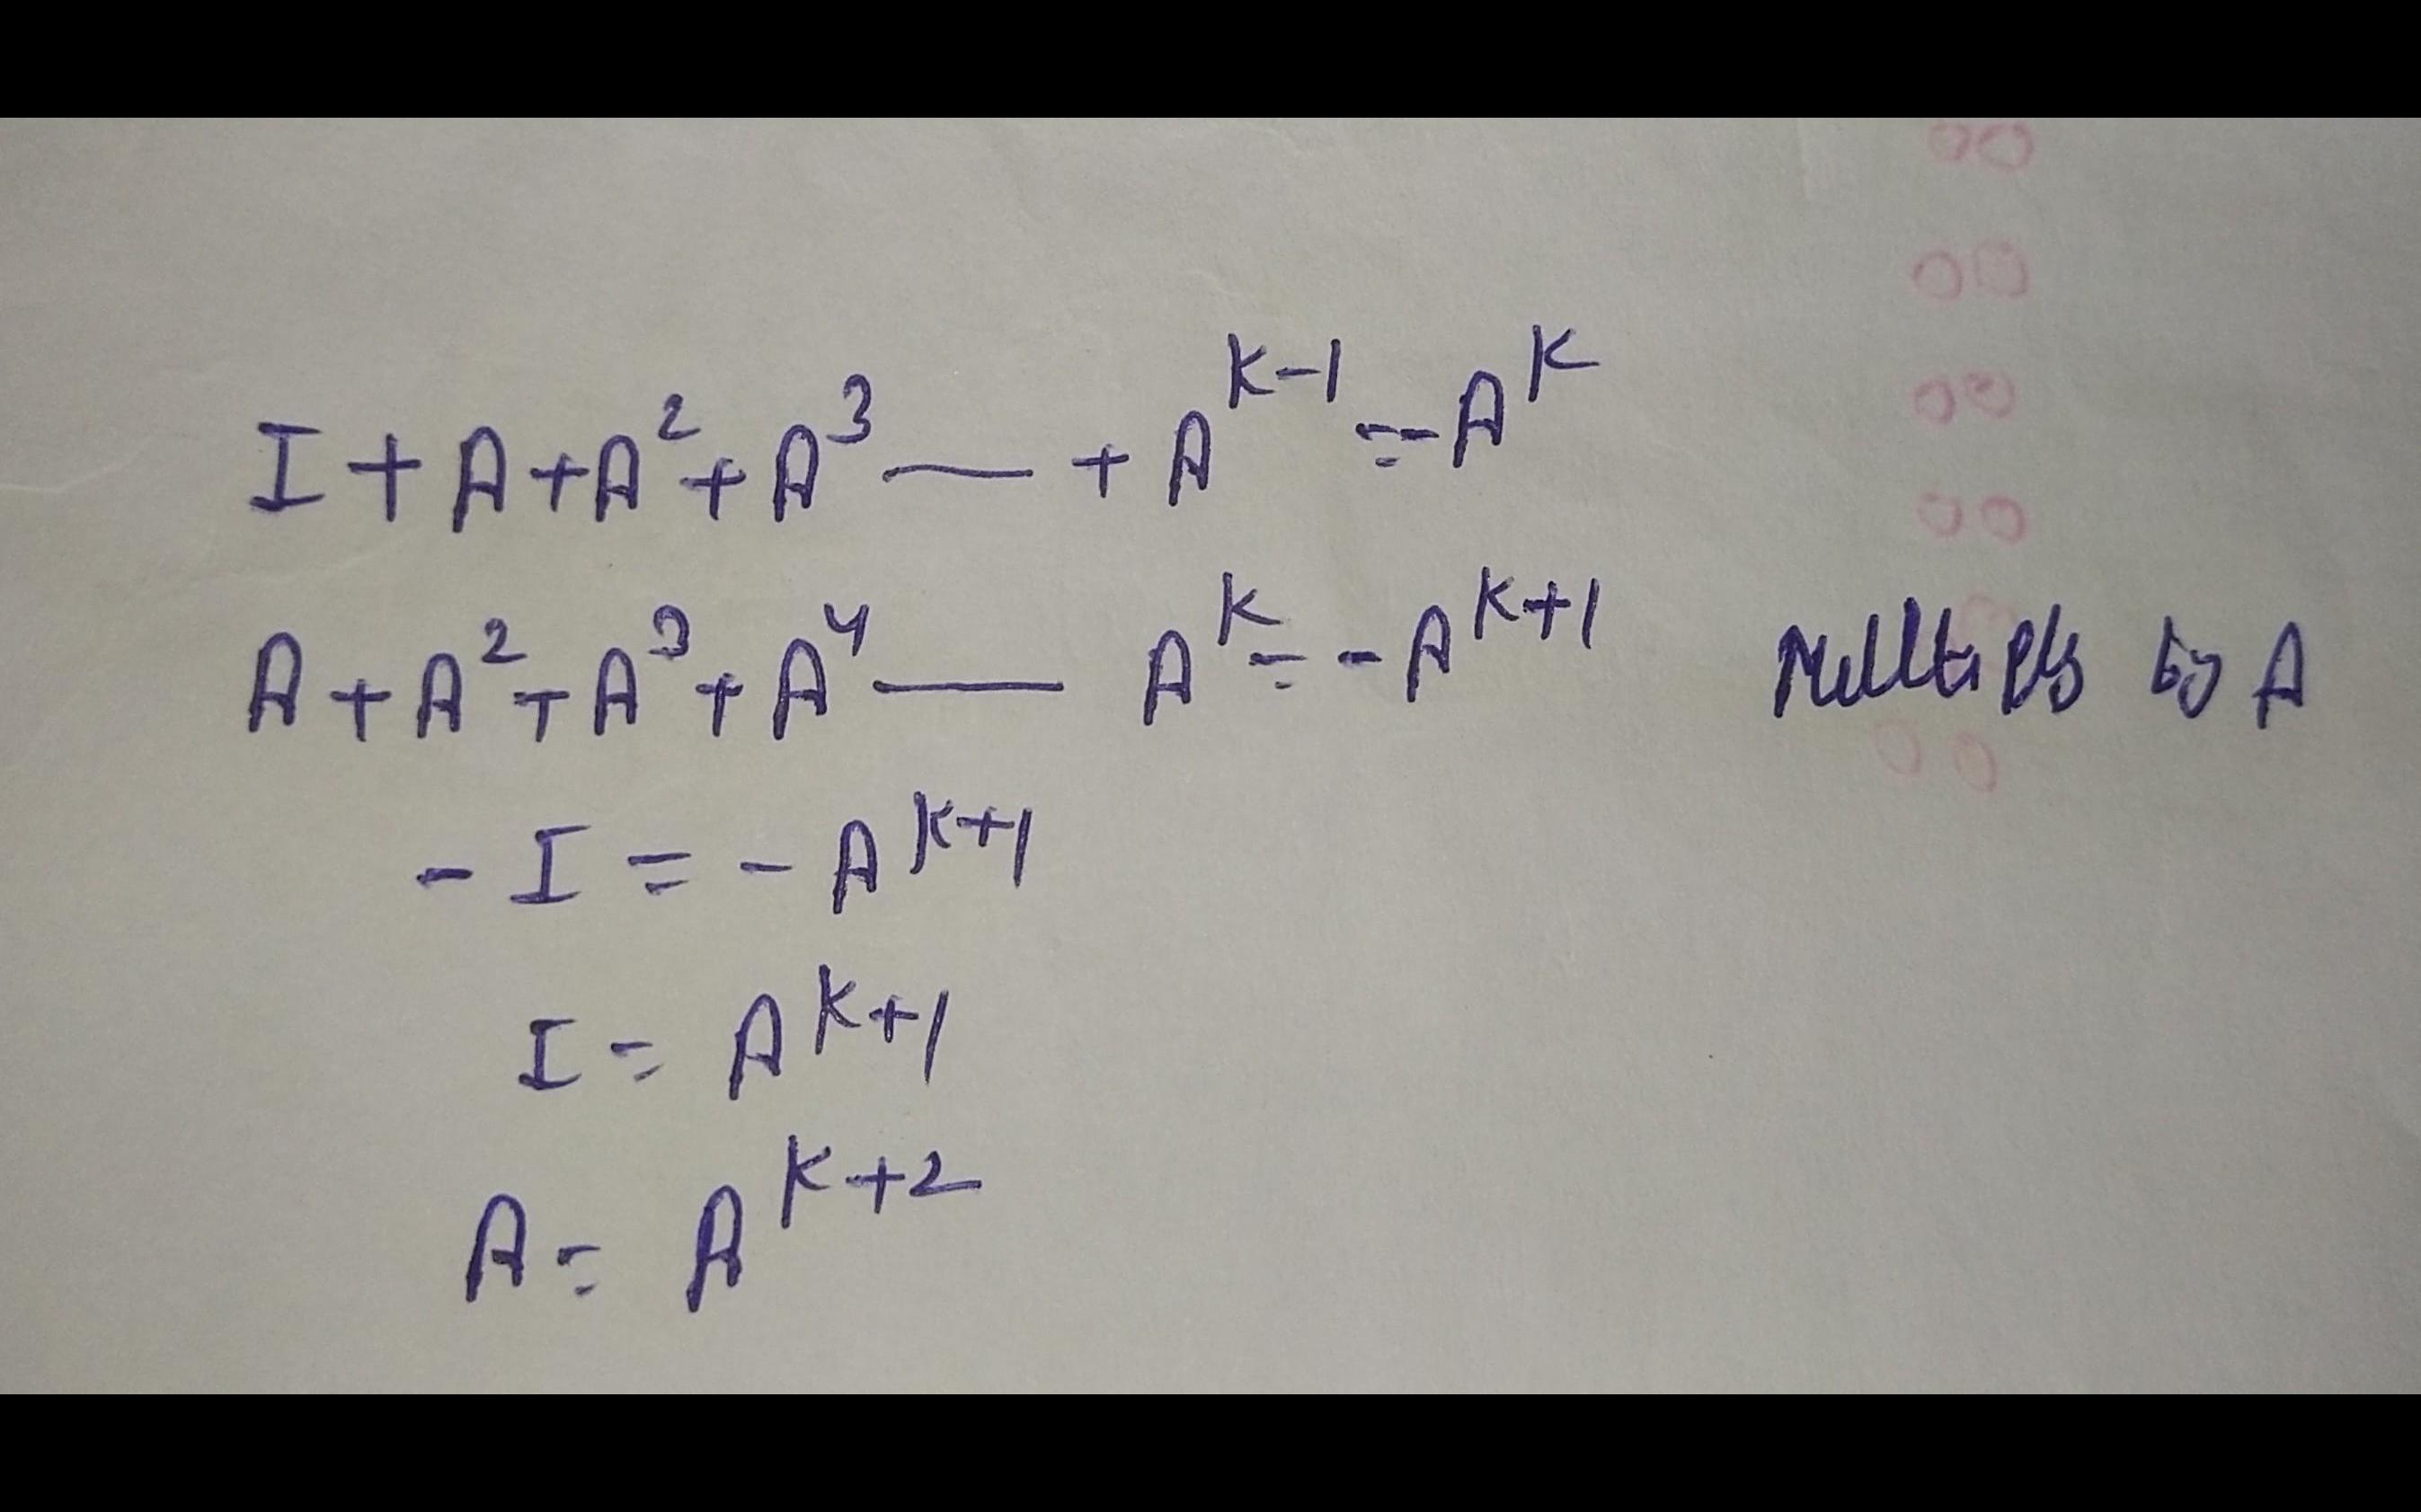 I + A + A² + A³ — + A^{k-1} = -A^k
A + A² + A³ + A⁴ — A^k = -A^{k+1} Multiply by A
- I = - A^{k+1}
I = A^{k+1}
A = A^{k+2}